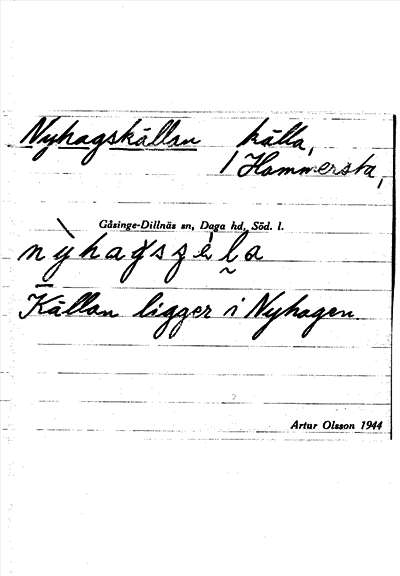 Nyhagskällan källa,
i Hammersta,
Gåsinge-Dillnäs sn, Daga hd, Söd. l.
Källan ligger i Nyhagen.
Artur Olsson 1944